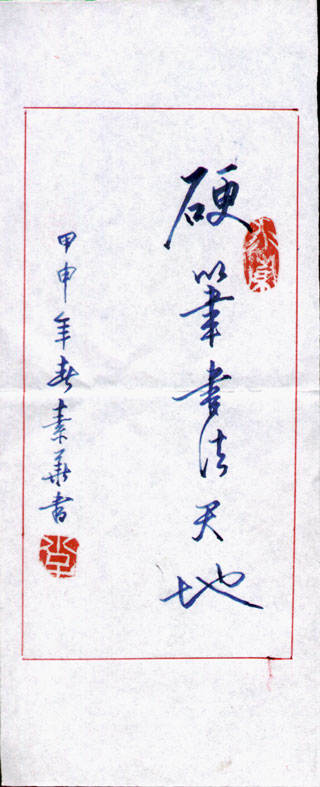 硬筆書法天地
甲申年春素華書